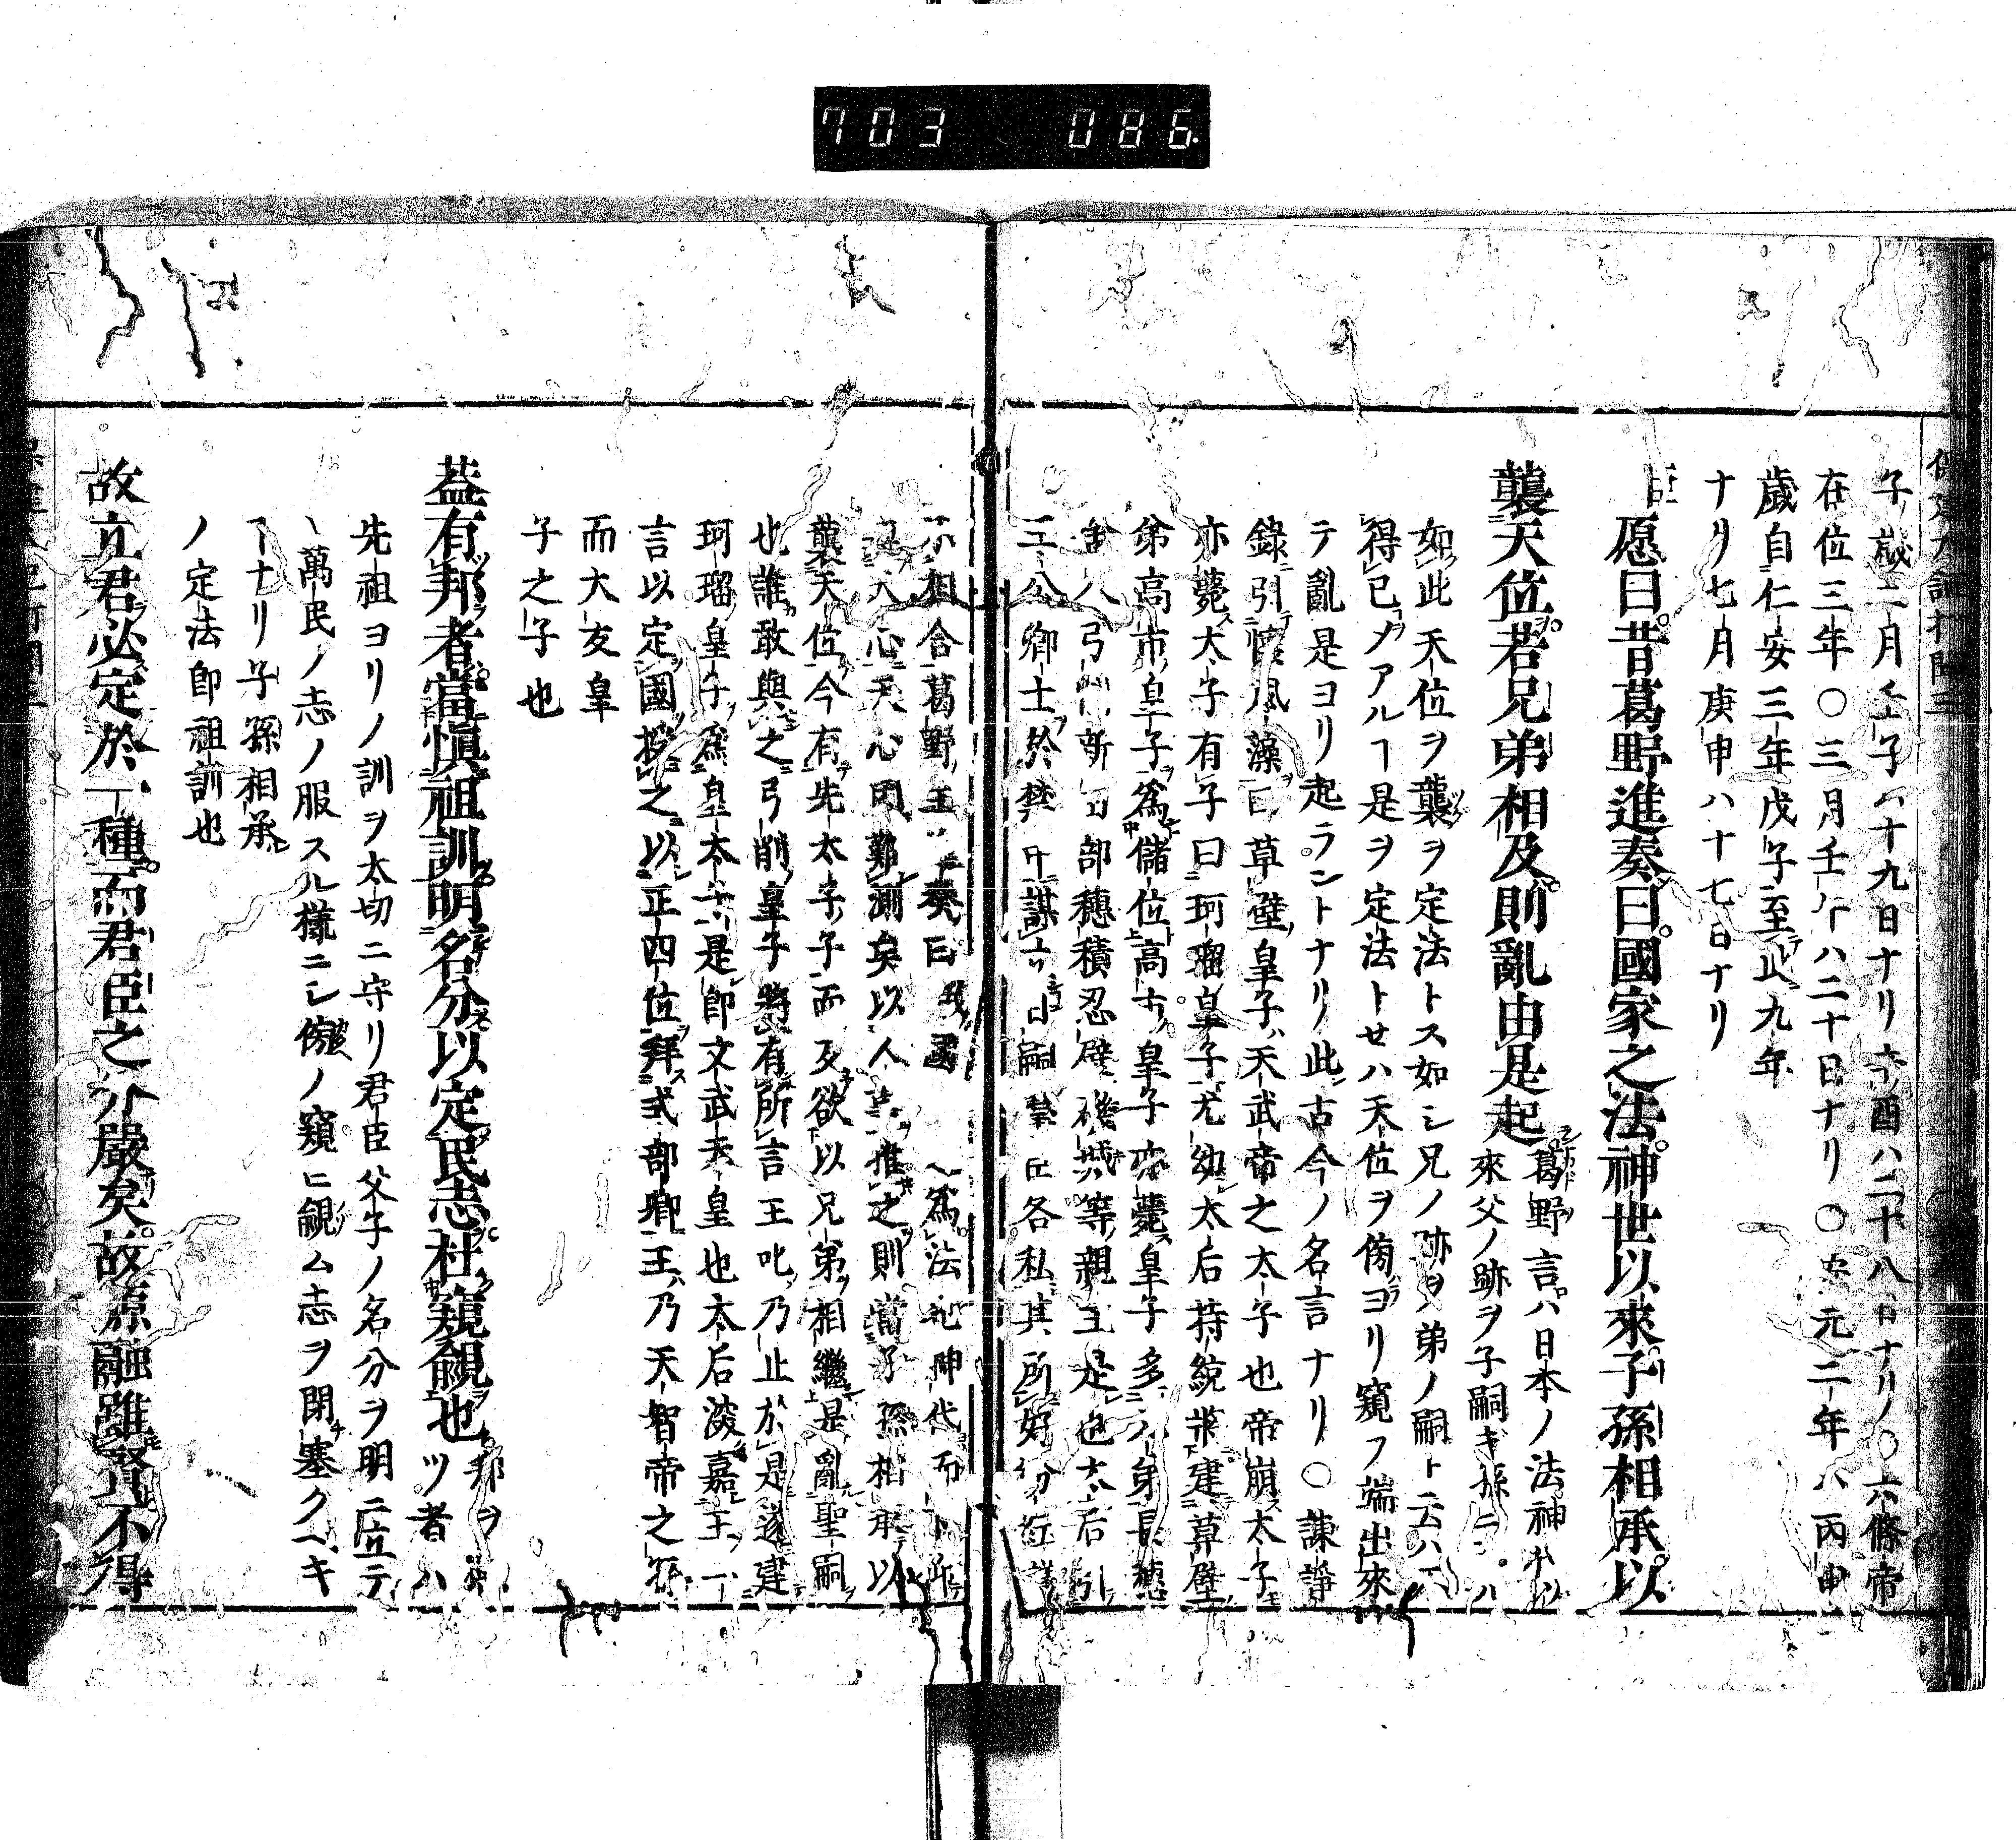 703 086
子歳二月壬子ハ十九日ナリ六條帝
在位三年〇三月壬午ハ二十日ナリ〇安元二年ハ丙申
歳自仁安三年戊子至此九年
ナリ七月庚申ハ十七日ナリ
臣愿曰昔葛野進奏曰國家之法神世以來子孫相承以
襲天位若兄弟相及則亂由是起
葛野言ハ日本ノ法神
來父ノ跡ヲ子嗣ギ孫
如此天位ヲ襲ヲ定法トス如シ兄ノ跡ヲ弟ノ嗣ト云ハ
得已アルヿ是ヲ定法トセハ天位ヲ傍ヨリ窺フ端出來
テ亂是ヨリ起ラントナリ此古今ノ名言ナリ〇諫諍
錄引懐風藻曰草壁皇子ハ天武帝之太子也帝崩太子
亦薨太子有子曰珂瑠皇子尤幼太后持統建草壁
弟高市皇子爲儲位高市皇子亦薨皇子多弟長穂
舍人弓削新田部穂積忍壁磯城等親王是也太后引
三公卿士於禁中謀立嗣各私其所好
不相合葛野王奏曰我國爲法
人心天心難測矣以人推之則當子孫相承以
襲天位今有先太子子而又欲以兄弟相繼是亂聖嗣
也誰敢與之弓削皇子將有所言王叱乃止於是遂建
珂瑠皇子爲皇太子是即文武天皇也太后淡嘉王一
言以定國授之以正四位拜式部卿王乃天智帝之孫
而大友皇
子之子也
葢有邦者當愼祖訓明名分以定民志杜窺覦也
邦ヲ
ツ者ハ
先祖ヨリノ訓ヲ太切ニ守リ君臣父子ノ名分ヲ明ニ立テ
萬民ノ志ノ服スル樣ニシ傍ノ窺ヒ覦ム志ヲ閉塞クベキ
ナリ子孫相承
ノ定法即祖訓也
故立君必定於一種而君臣之分嚴矣故源融雖賢不得